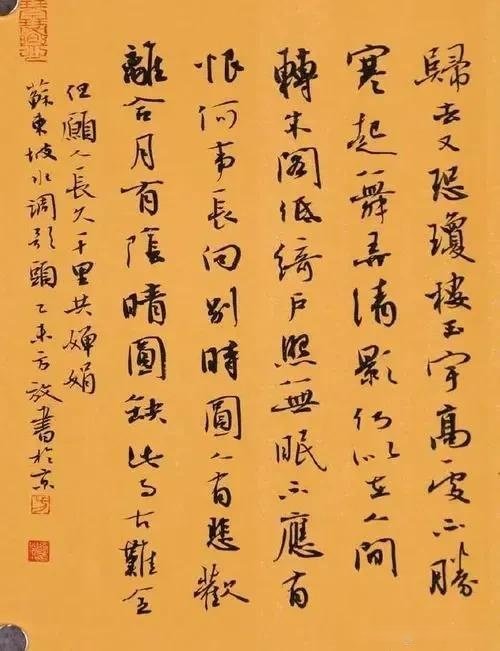 歸去又恐瓊樓玉宇高處不勝
寒起舞弄清影何似在人間
轉朱閣低綺戶照無眠不應有
恨何事長向別時圓人有悲歡
離合月有陰晴圓缺此事古難全
但願人長久千里共嬋娟
蘇東坡水調歌頭乙未方放書於京